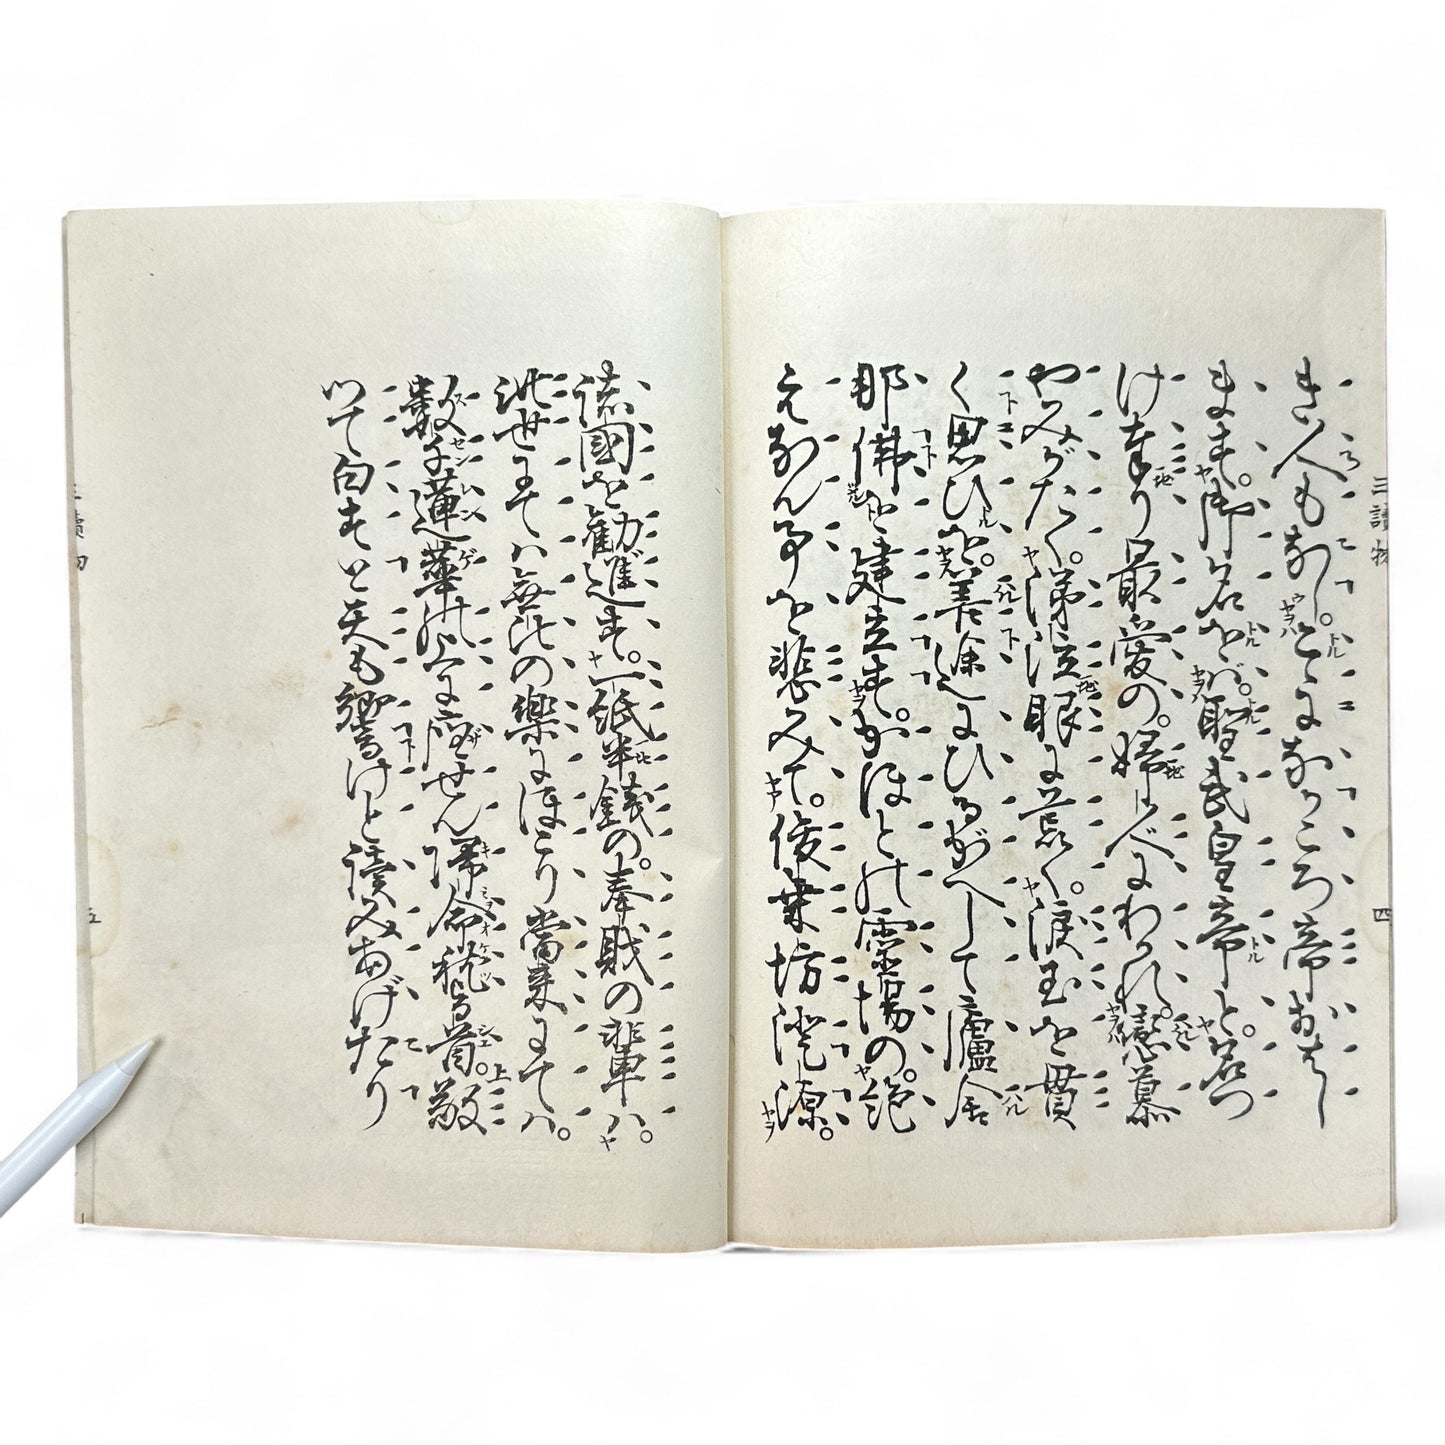 き人もなし。こゝになかころ帝おはし
ます。御名をば。聖武皇帝と。名つ
け奉り最愛の。婦人にわかれ。恋慕
やみがたく。涕泣眼に荒く。涙玉を貫
く思ひを。善途にひるがへして廬舎
那佛を建立す。かほどの霊場の。絶
えなん事を悲みて。俊乗坊澄源。
諸國を勧進す。一紙半銭の。奉賎の輩ハ。
此世にてハ無比の樂にほこり當来にてハ。
数千蓮華の上に座せん帰命稽首。敬
つて白すと天も響けと讀みあげたり
三讀物
四
五